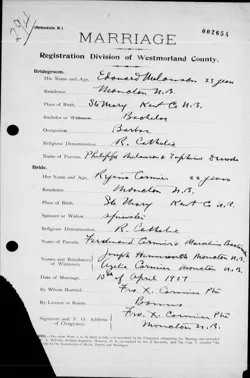 291
(Schedule B.)
002654
MARRIAGE
Registration Division of Westmorland County.
Bridegroom.
His Name and Age, Edouard Melanson 23 years
Residence, Moncton N.B.
Place of Birth, St. Mary Kent Co N.B.
Bachelor or Widower, Bachelor
Occupation, Barber
Religious Denomination, R. Catholic
Name of Parents, Philippe Melanson &
Bride.
Her Name and Age, Cormier 22 years
Residence, Moncton N.B.
Place of Birth, Ste Mary Kent Co N.B.
Spinster or Widow, spinster
Religious Denomination, R. Catholic
Name of Parents, Ferdinand Cormier &
Names and Residences of Witnesses Joseph Moncton N.B.
Cormier Moncton N.B.
Date of Marriage, of April 1907
By Whom Married, Fr. X. Cormier Ptr
By License or Banns, Banns
Signature and P. O. Address of Clergyman Fr. X. Cormier Ptr
Moncton N.B.